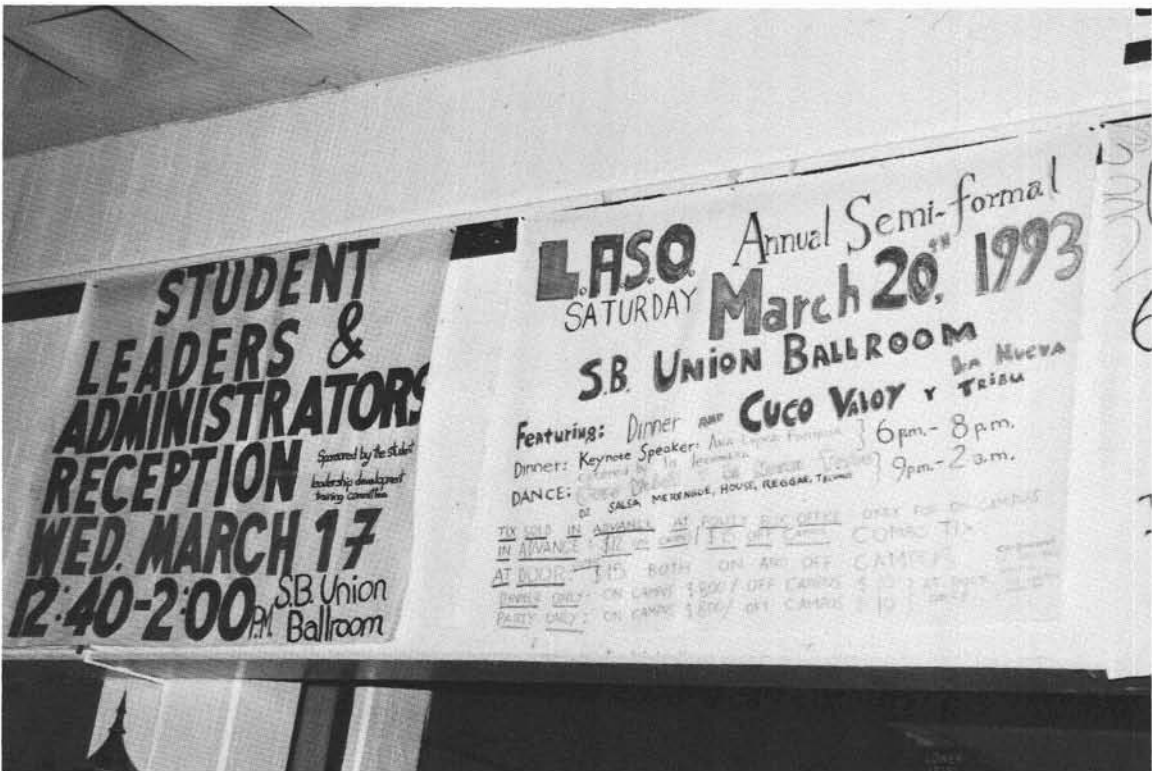 STUDENT
LEADERS &
ADMINISTRATORS
RECEPTION
Sponsored by the student
leadership development
training committee
WED. MARCH 17
12:40-2:00 P.M.
S.B. Union
Ballroom
L.A.S.O. Annual Semi-formal
SATURDAY March 20TH, 1993
S.B. UNION BALLROOM
Featuring: Dinner AND CUCO VALOY Y LA NUEVA TRIBU
Dinner: Keynote Speaker: 6 p.m. - 8 p.m.
DANCE: 9 p.m. - 2 a.m.
SALSA, MERENGUE, HOUSE, REGGAE, TECHNO
TIX SOLD IN ADVANCE AT POLITY BOX OFFICE ONLY FOR ON CAMPUS
IN ADVANCE $12 ON CAMPUS / $15 OFF CAMPUS COMBO TIX
AT DOOR $15 BOTH ON AND OFF CAMPUS
DINNER ONLY: ON CAMPUS $8.00 / OFF CAMPUS $10
PARTY ONLY: ON CAMPUS $8.00 / OFF CAMPUS $10
LOWER